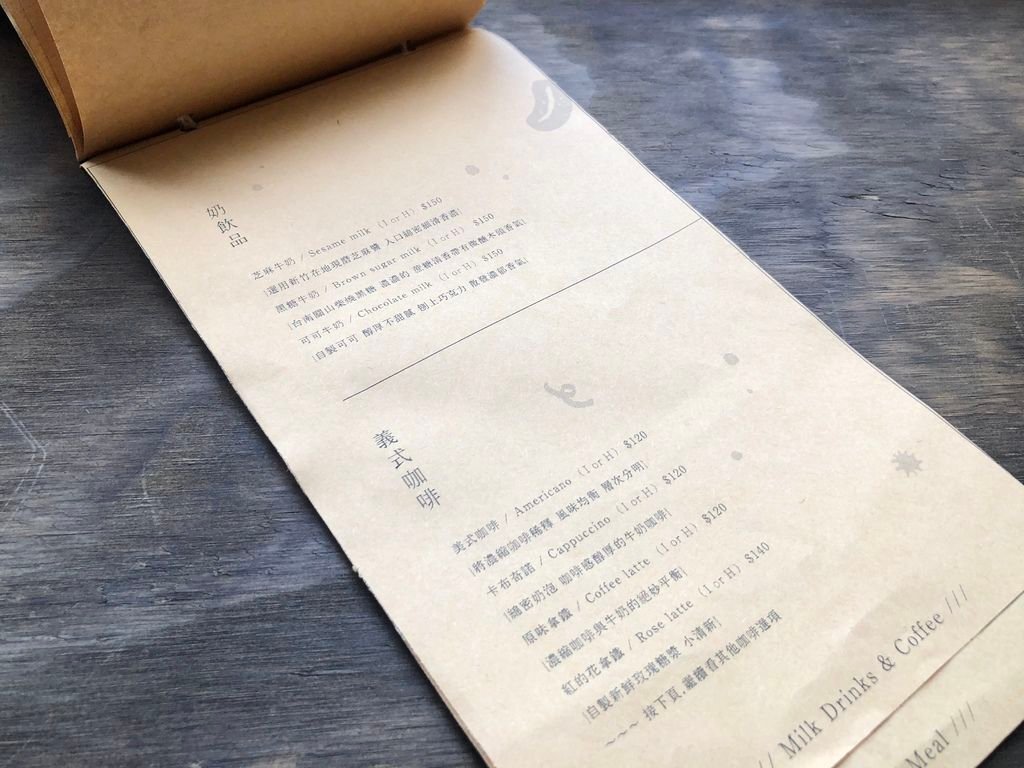 奶飲品
芝麻牛奶 / Sesame milk (I or H) $150
|選用新竹在地現磨芝麻醬 入口綿密細滑香濃|
黑糖牛奶 / Brown sugar milk (I or H) $150
|台南關山柴燒黑糖 濃濃的 蔗糖清香帶有微醺木頭香氣|
可可牛奶 / Chocolate milk (I or H) $150
|自製可可 醇厚不甜膩 刨上巧克力 散發濃郁香氣|
義式咖啡
美式咖啡 / Americano (I or H) $120
|將濃縮咖啡稀釋 風味均衡 層次分明|
卡布奇諾 / Cappuccino (I or H) $120
|綿密奶泡 咖啡感醇厚的牛奶咖啡|
原味拿鐵 / Coffee latte (I or H) $120
|濃縮咖啡與牛奶的絕妙平衡|
紅的花拿鐵 / Rose latte (I or H) $140
|自製新鮮玫瑰糖漿 小清新|
~~~ 接下頁,繼續看其他咖啡選項
// Milk Drinks & Coffee ///
Meal ///